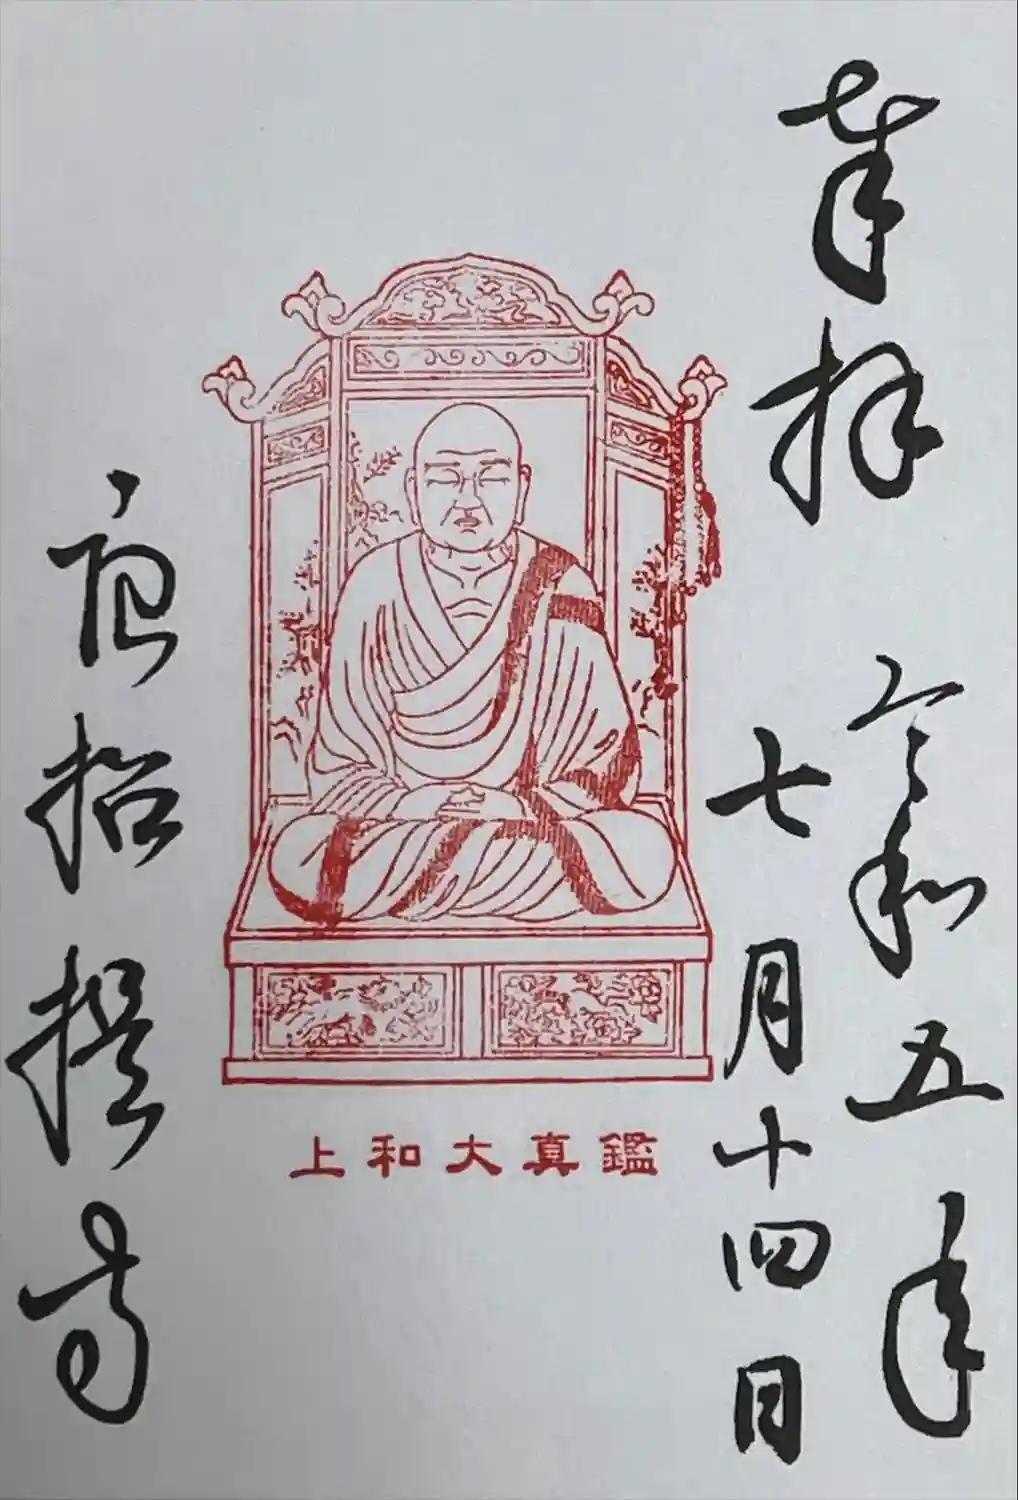 奉拝
令和五年
七月十四日
鑑真大和上
唐招提寺